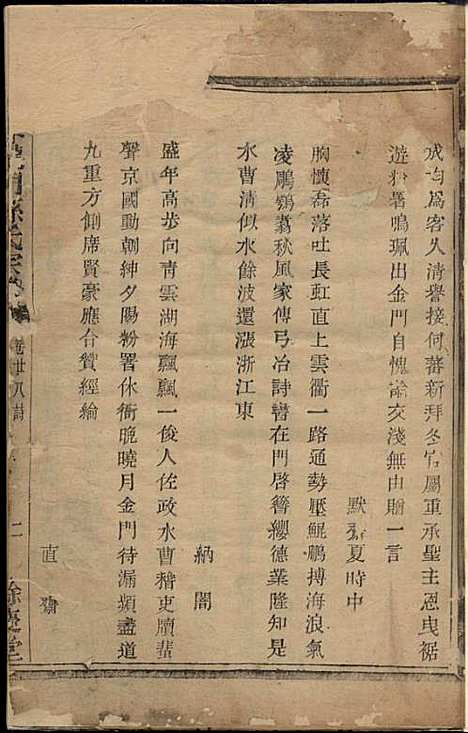 成均爲客久清譽接何蕃新拜冬官屬重承聖主恩曳裾
遊粉署鳴珮出金門自愧論交淺無由贈一言
默齋夏時中
胸懷磊落吐長虹直上雲衢一路通勢壓鯤鵬搏海浪氣
凌鵰鶚翥秋風家傳弓冶詩書在門啓簪纓德業隆知是
水曹清似水餘波還漲浙江東
納閣
盛年高步向青雲湖海飄飄一俊人佐政水曹稽吏牘蜚
聲京國動朝紳夕陽粉署休衙晚曉月金門待漏頻盡道
九重方側席賢豪應合贊經綸
直齋
氏宗
卷廿八詩
二
餘慶堂